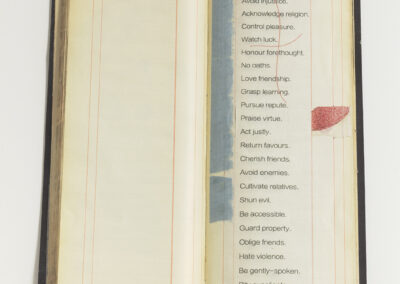 Avoid injustice.
Acknowledge religion.
Control pleasure.
Watch luck.
Honour forethought.
No oaths.
Love friendship.
Grasp learning.
Pursue repute.
Praise virtue.
Act justly.
Return favours.
Cherish friends.
Avoid enemies.
Cultivate relatives.
Shun evil.
Be accessible.
Guard property.
Oblige friends.
Hate violence.
Be gently-spoken.